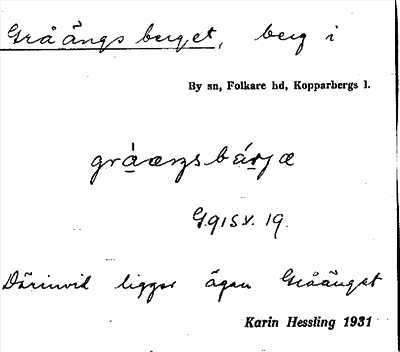 Gråängsberget, berg i
By sn, Folkare hd, Kopparbergs l.
gråæŋsbárjæ
G.91SV. 19.
Därinvid ligger ägan Gråänget
Karin Hessling 1931